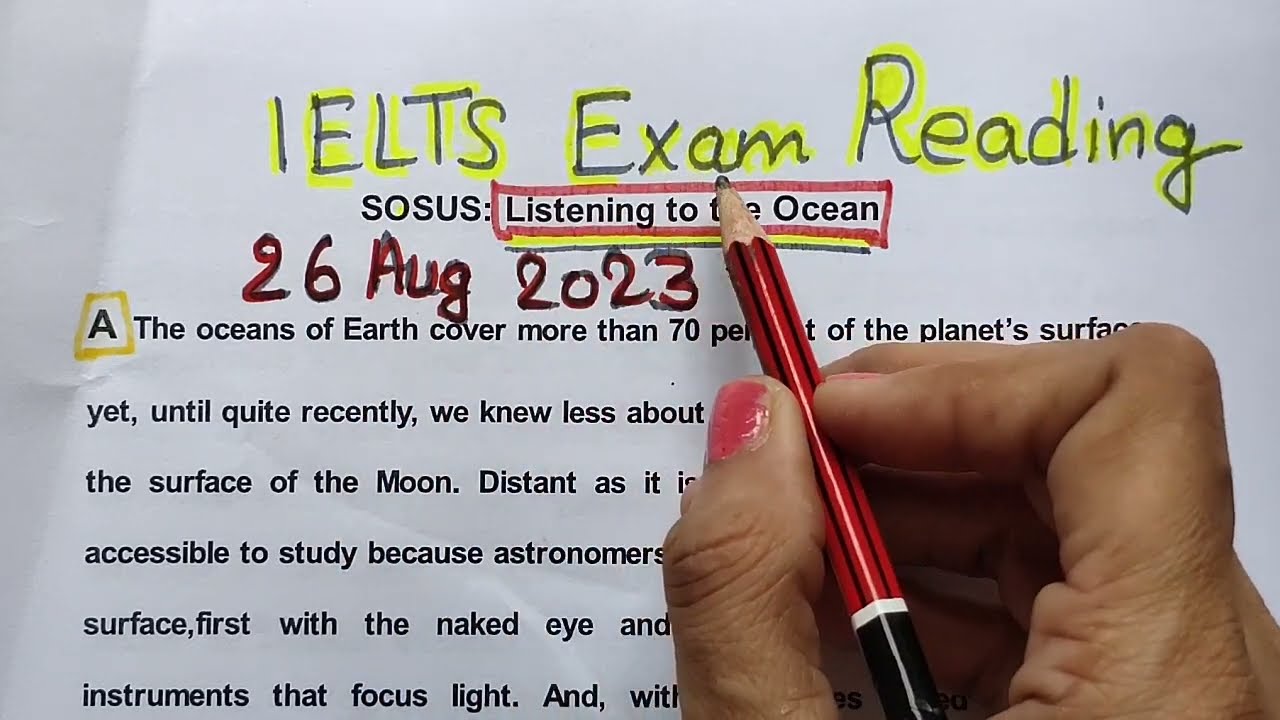 IELTS Exam Reading
SOSUS: Listening to the Ocean
26 Aug 2023
A The oceans of Earth cover more than 70 of the planet's surface
yet, until quite recently, we knew less about
the surface of the Moon. Distant as it is
accessible to study because astronomers
surface,first with the naked eye and
instruments that focus light. And, with